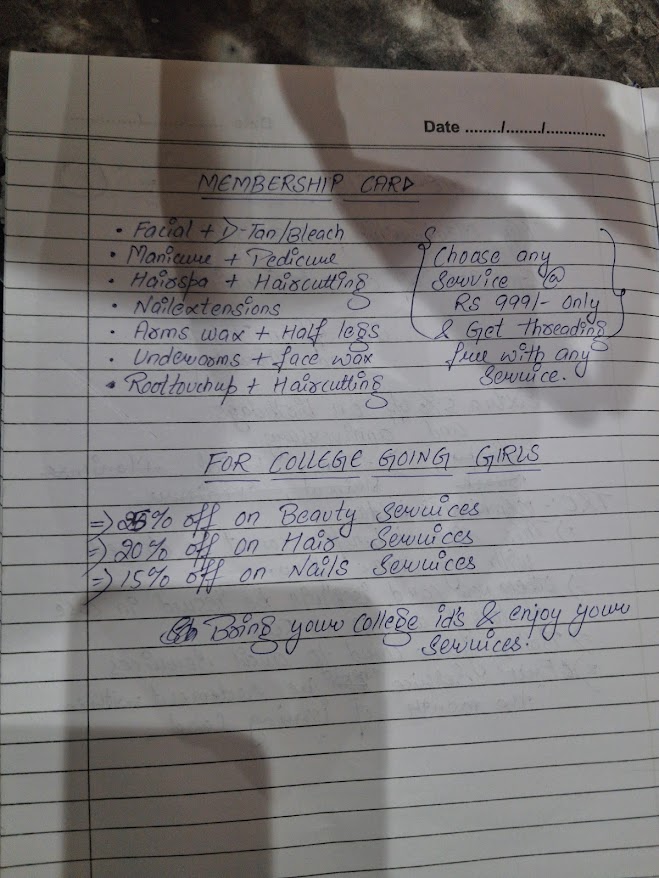 Date ......../......../..............
MEMBERSHIP CARD
• Facial + D-Tan/Bleach
• Manicure + Pedicure
• Hairspa + Haircutting
• Nailextensions
• Arms wax + Half legs
• Underarms + face wax
• Roottouchup + Haircutting
Choose any
Service @
RS 999/- only
& Get threading
free with any
Service.
FOR COLLEGE GOING GIRLS
=> 25% off on Beauty Services
=> 20% off on Hair Services
=> 15% off on Nails Services
Bring your college id's & enjoy your
Services.